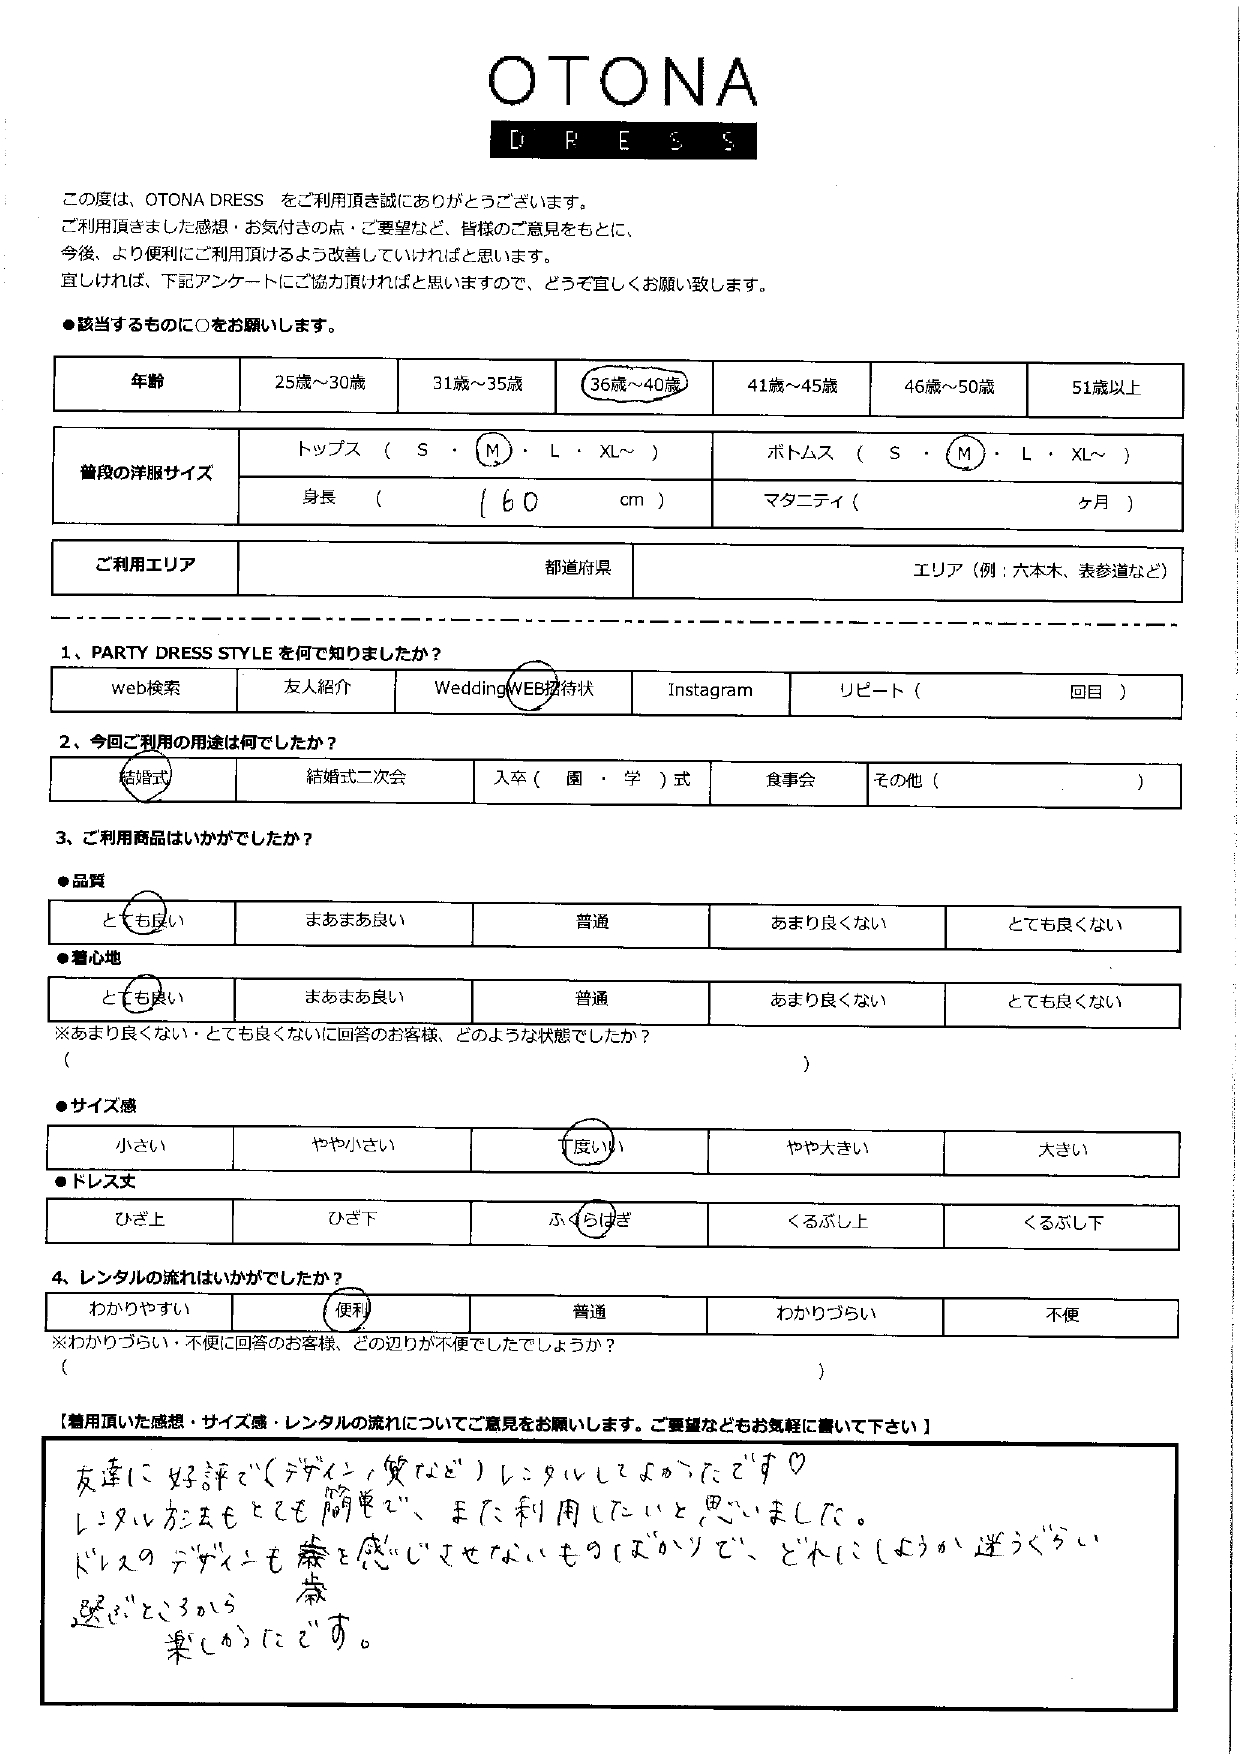 OTONA
DRESS
この度は、OTONA DRESS をご利用頂き誠にありがとうございます。
ご利用頂きました感想・お気付きの点・ご要望など、皆様のご意見をもとに、
今後、より便利にご利用頂けるよう改善していければと思います。
宜しければ、下記アンケートにご協力頂ければと思いますので、どうぞ宜しくお願い致します。
●該当するものに○をお願いします。
年齢 25歳～30歳 31歳～35歳 36歳～40歳 41歳～45歳 46歳～50歳 51歳以上
普段の洋服サイズ トップス ( S ・ M ・ L ・ XL～ ) ボトムス ( S ・ M ・ L ・ XL～ )
身長 ( 160 cm ) マタニティ ( ヶ月 )
ご利用エリア 都道府県 エリア（例：六本木、表参道など）
1、PARTY DRESS STYLE を何で知りましたか？
web検索 友人紹介 WeddingWEB招待状 Instagram リピート ( 回目 )
2、今回ご利用の用途は何でしたか？
結婚式 結婚式二次会 入卒 ( 園 ・ 学 ) 式 食事会 その他 ( )
3、ご利用商品はいかがでしたか？
●品質
とても良い まあまあ良い 普通 あまり良くない とても良くない
●着心地
とても良い まあまあ良い 普通 あまり良くない とても良くない
※あまり良くない・とても良くないに回答のお客様、どのような状態でしたか？
( )
●サイズ感
小さい やや小さい 丁度いい やや大きい 大きい
●ドレス丈
ひざ上 ひざ下 ふくらはぎ くるぶし上 くるぶし下
4、レンタルの流れはいかがでしたか？
わかりやすい 便利 普通 わかりづらい 不便
※わかりづらい・不便に回答のお客様、どの辺りが不便でしたでしょうか？
( )
【着用頂いた感想・サイズ感・レンタルの流れについてご意見をお願いします。ご要望などもお気軽に書いて下さい】
友達に好評で(デザイン、質など)レンタルしてよかったです♡
レンタル方法もとても簡単で、また利用したいと思いました。
ドレスのデザインも歳を感じさせないものばかりで、どれにしようか迷うぐらい
歳
選ぶところから
楽しかったです。